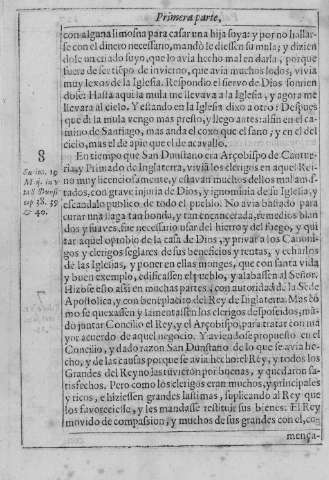 Primera parte,
con alguna limosna para casar una hija suya: y por no hallar-
se con el dinero necessario, mandòle diessen su mula; y dizien
dole un criado suyo, que lo avia hecho mal en darla, porque
fuera de ser tiẽpo de invierno, que avia muchos lodos, vivia
muy lexos de la Iglesia. Respondio el siervo de Dios sonrien
dose: Hasta aqui la mula me llevava à la Iglesia, y agora me
llevarà al cielo. Y estando en la Iglesia dixo a otro: Despues
que di la mula vengo mas presto, y llego antes: assi en el ca-
mino de Santiago, mas anda el coxo que el sano; y en el del
cielo, mas el de a pie que el de acavallo.
8 En tiempo que San Dunstano era Arçobispo de Cantue-
ria, y Primado de Inglaterra, vivia los clerigos en aquel Rei-
no muy licenciosamente, y estavan muchos dellos mal amis-
tados, con grave injuria de Dios, y ignominia de su Iglesia, y
escandalo publico de todo el pueblo. No avia bastado para
curar una llaga tan honda, y tan encancerada, remedios blan
dos y suaves, fue necessario usar del hierro y del fuego, y qui
tar aquel oprobio de la casa de Dios, y privar a los Canoni-
gos y clerigos seglares de sus beneficios y rentas, y echarlos
de las Iglesias, y poner en ellas monges, que con santa vida
y buen exemplo, edificassen el pueblo, y alabassen al Señor.
Hizose esto assi en muchas partes, con autoridad de la Sede
Apostolica, y con beneplacito del Rey de Inglaterra. Mas co
mo se quexassen y lamentassen los clerigos desposseidos, mã-
dò juntar Concilio el Rey, y el Arçobispo, para tratar con ma
yor acuerdo de aquel negocio. Y aviendose propuesto en el
Concilio, y dado razon San Dunstano de lo que se avia he-
cho, y de las causas porque se avia hecho: el Rey, y todos los
Grandes del Reyno las tuvieron por buenas, y quedaron sa-
tisfechos. Pero como los clerigos eran muchos, y principales
y ricos, e hiziessen grandes lastimas, suplicando al Rey que
los favoreciesse, y les mandasse restituir sus bienes. El Rey
movido de compassion, y muchos de sus grandes con el, co-
mença-